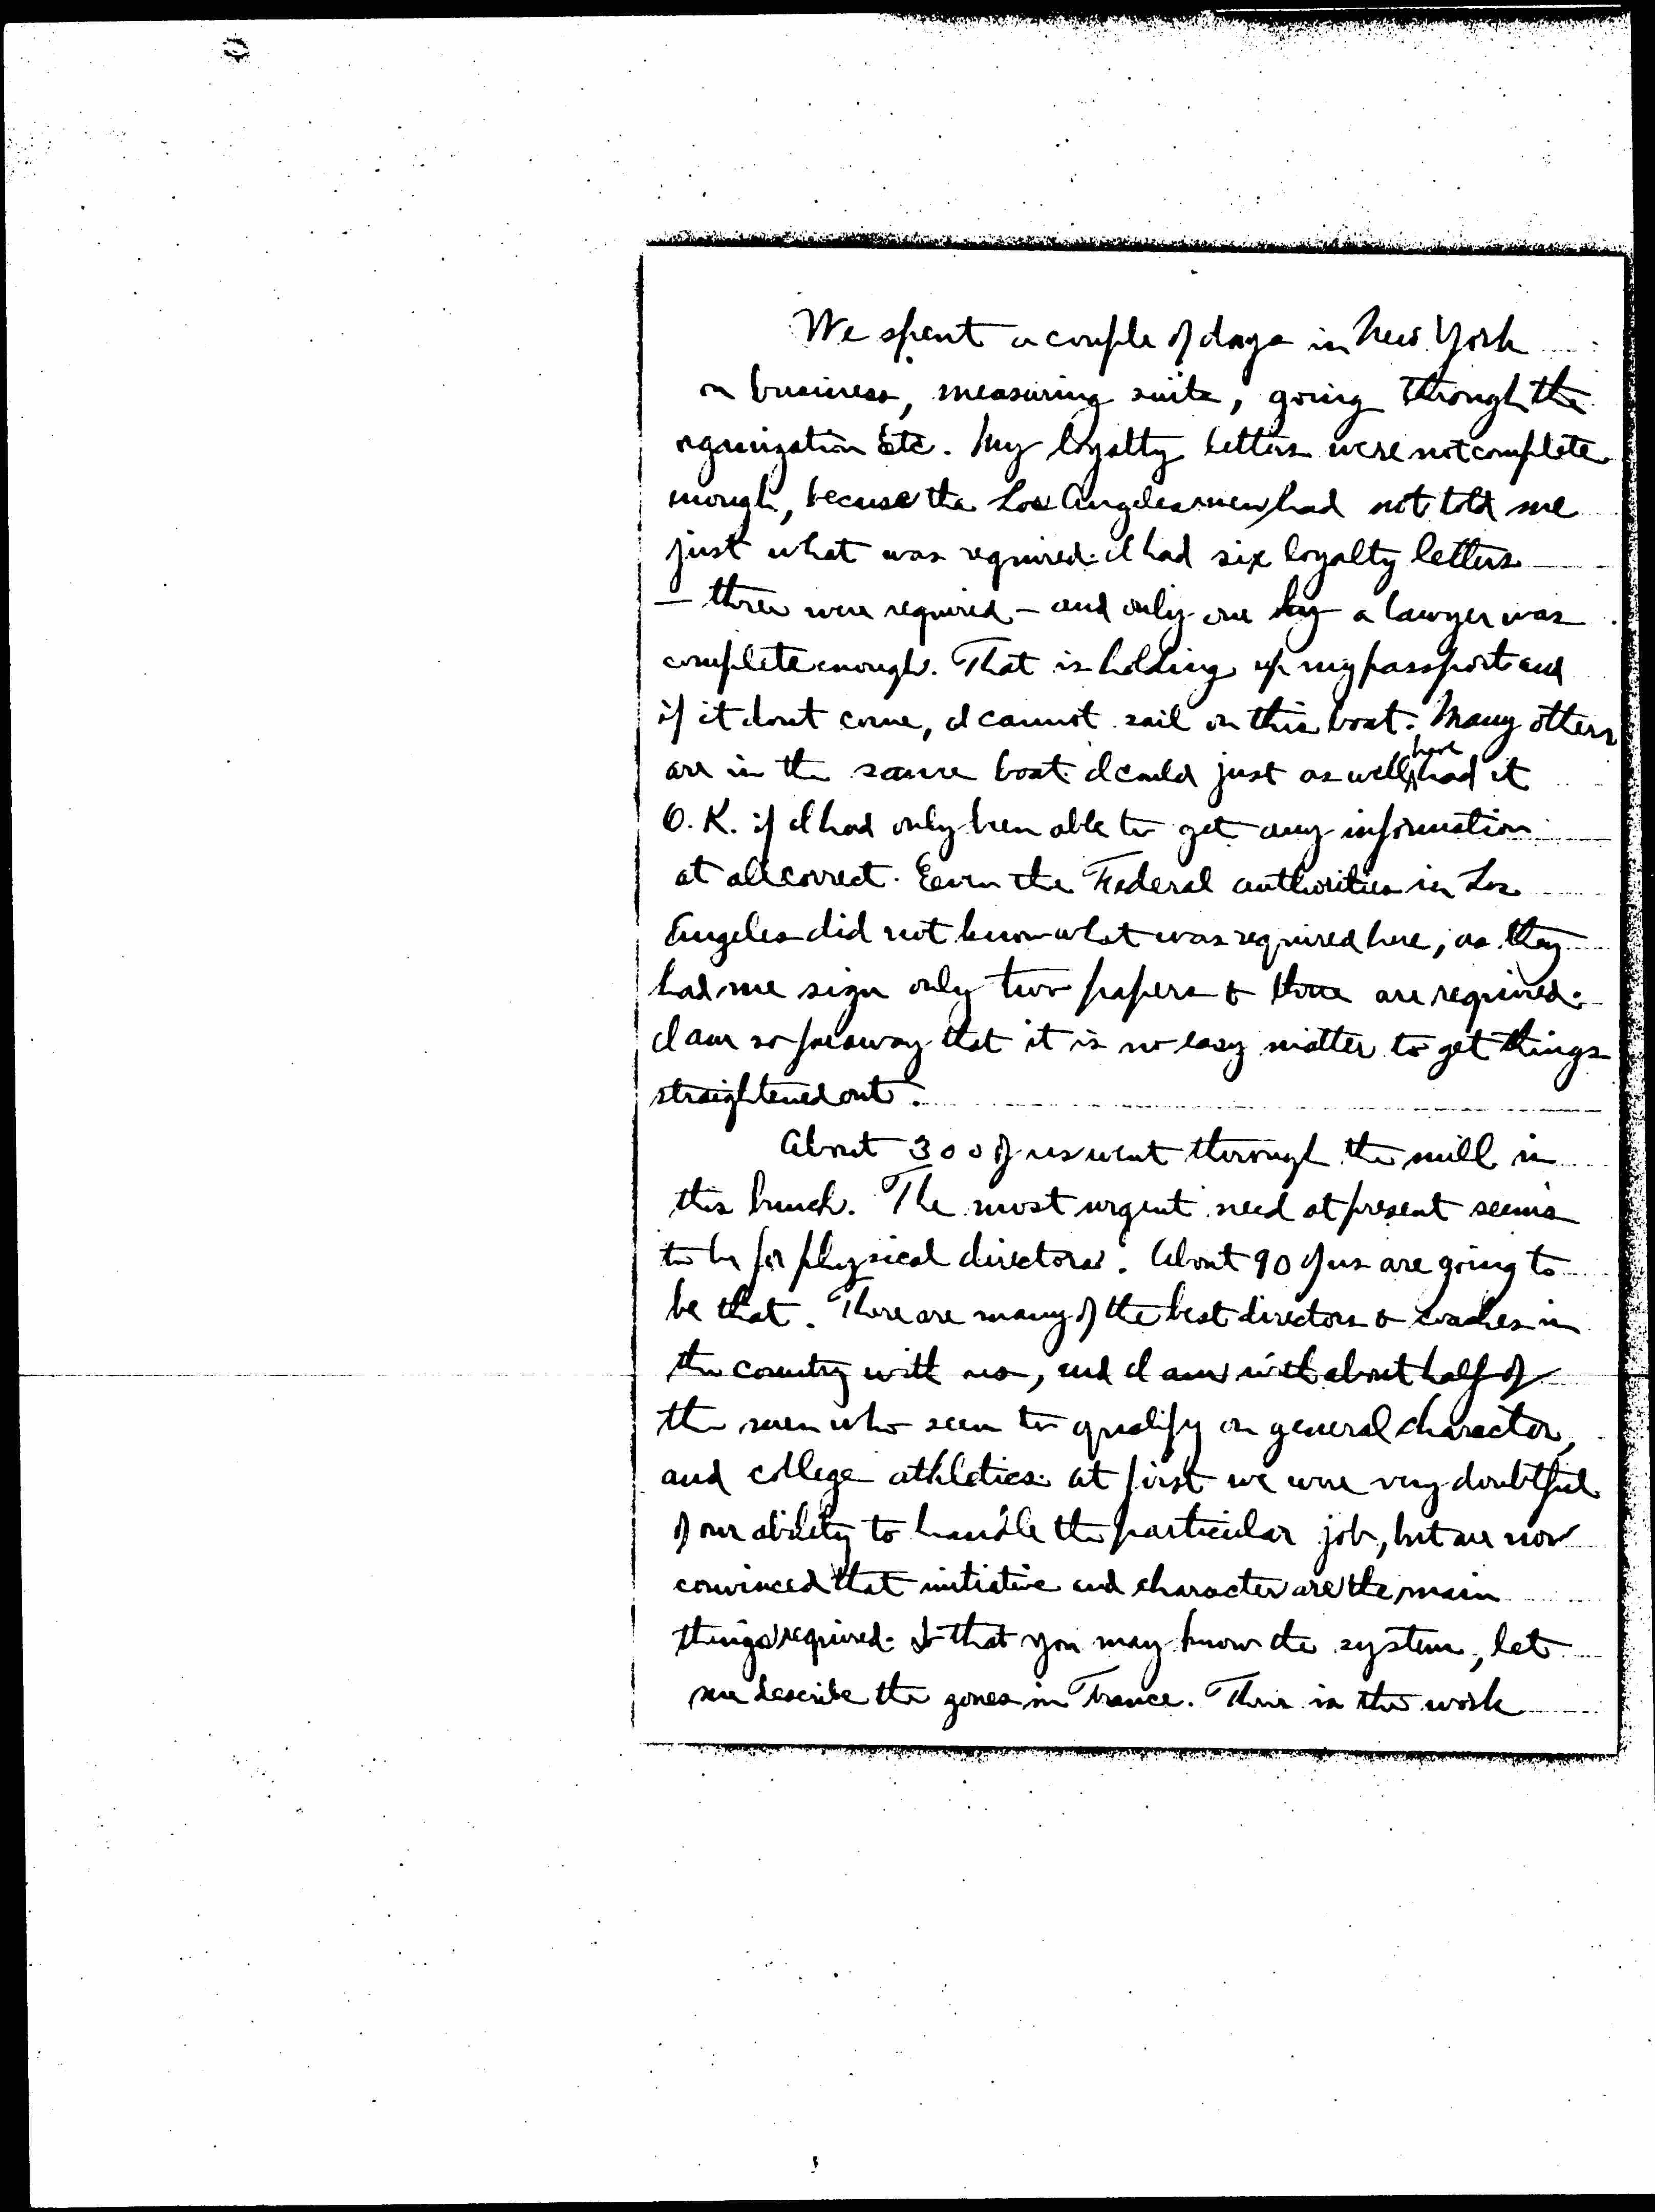 We spent a couple of days in New York
on business, measuring suits, going through the
organization Etc. My loyalty letters were not complete
enough, becuse the Los Angeles men had not told me
just what was required. I had six loyalty letters
— three were required — and only one by a lawyer was
complete enough. That is holding up my passport and
if it dont come, I cannot sail on this boat. Many others
are in the same boat. I could just as well have had it
O.K. if I had only been able to get any information
at all correct. Even the Federal authorities in Los
Angeles did not know what was required here, as they
had me sign only two papers & three are required.
I am so far away that it is no easy matter to get things
straightened out.
About 300 of us went through the mill in
this bunch. The most urgent need at present seems
to be for physical directors. About 90 of us are going to
be that. There are many of the best directors & coaches in
the country with us, and I am with about half of
the men who seem to qualify on general character,
and college athletics. At first we were very doubtful
of our ability to handle the particular job, but are now
convinced that initiative and character are the main
things required. So that you may know the system, let
me describe the zones in France. There is the work